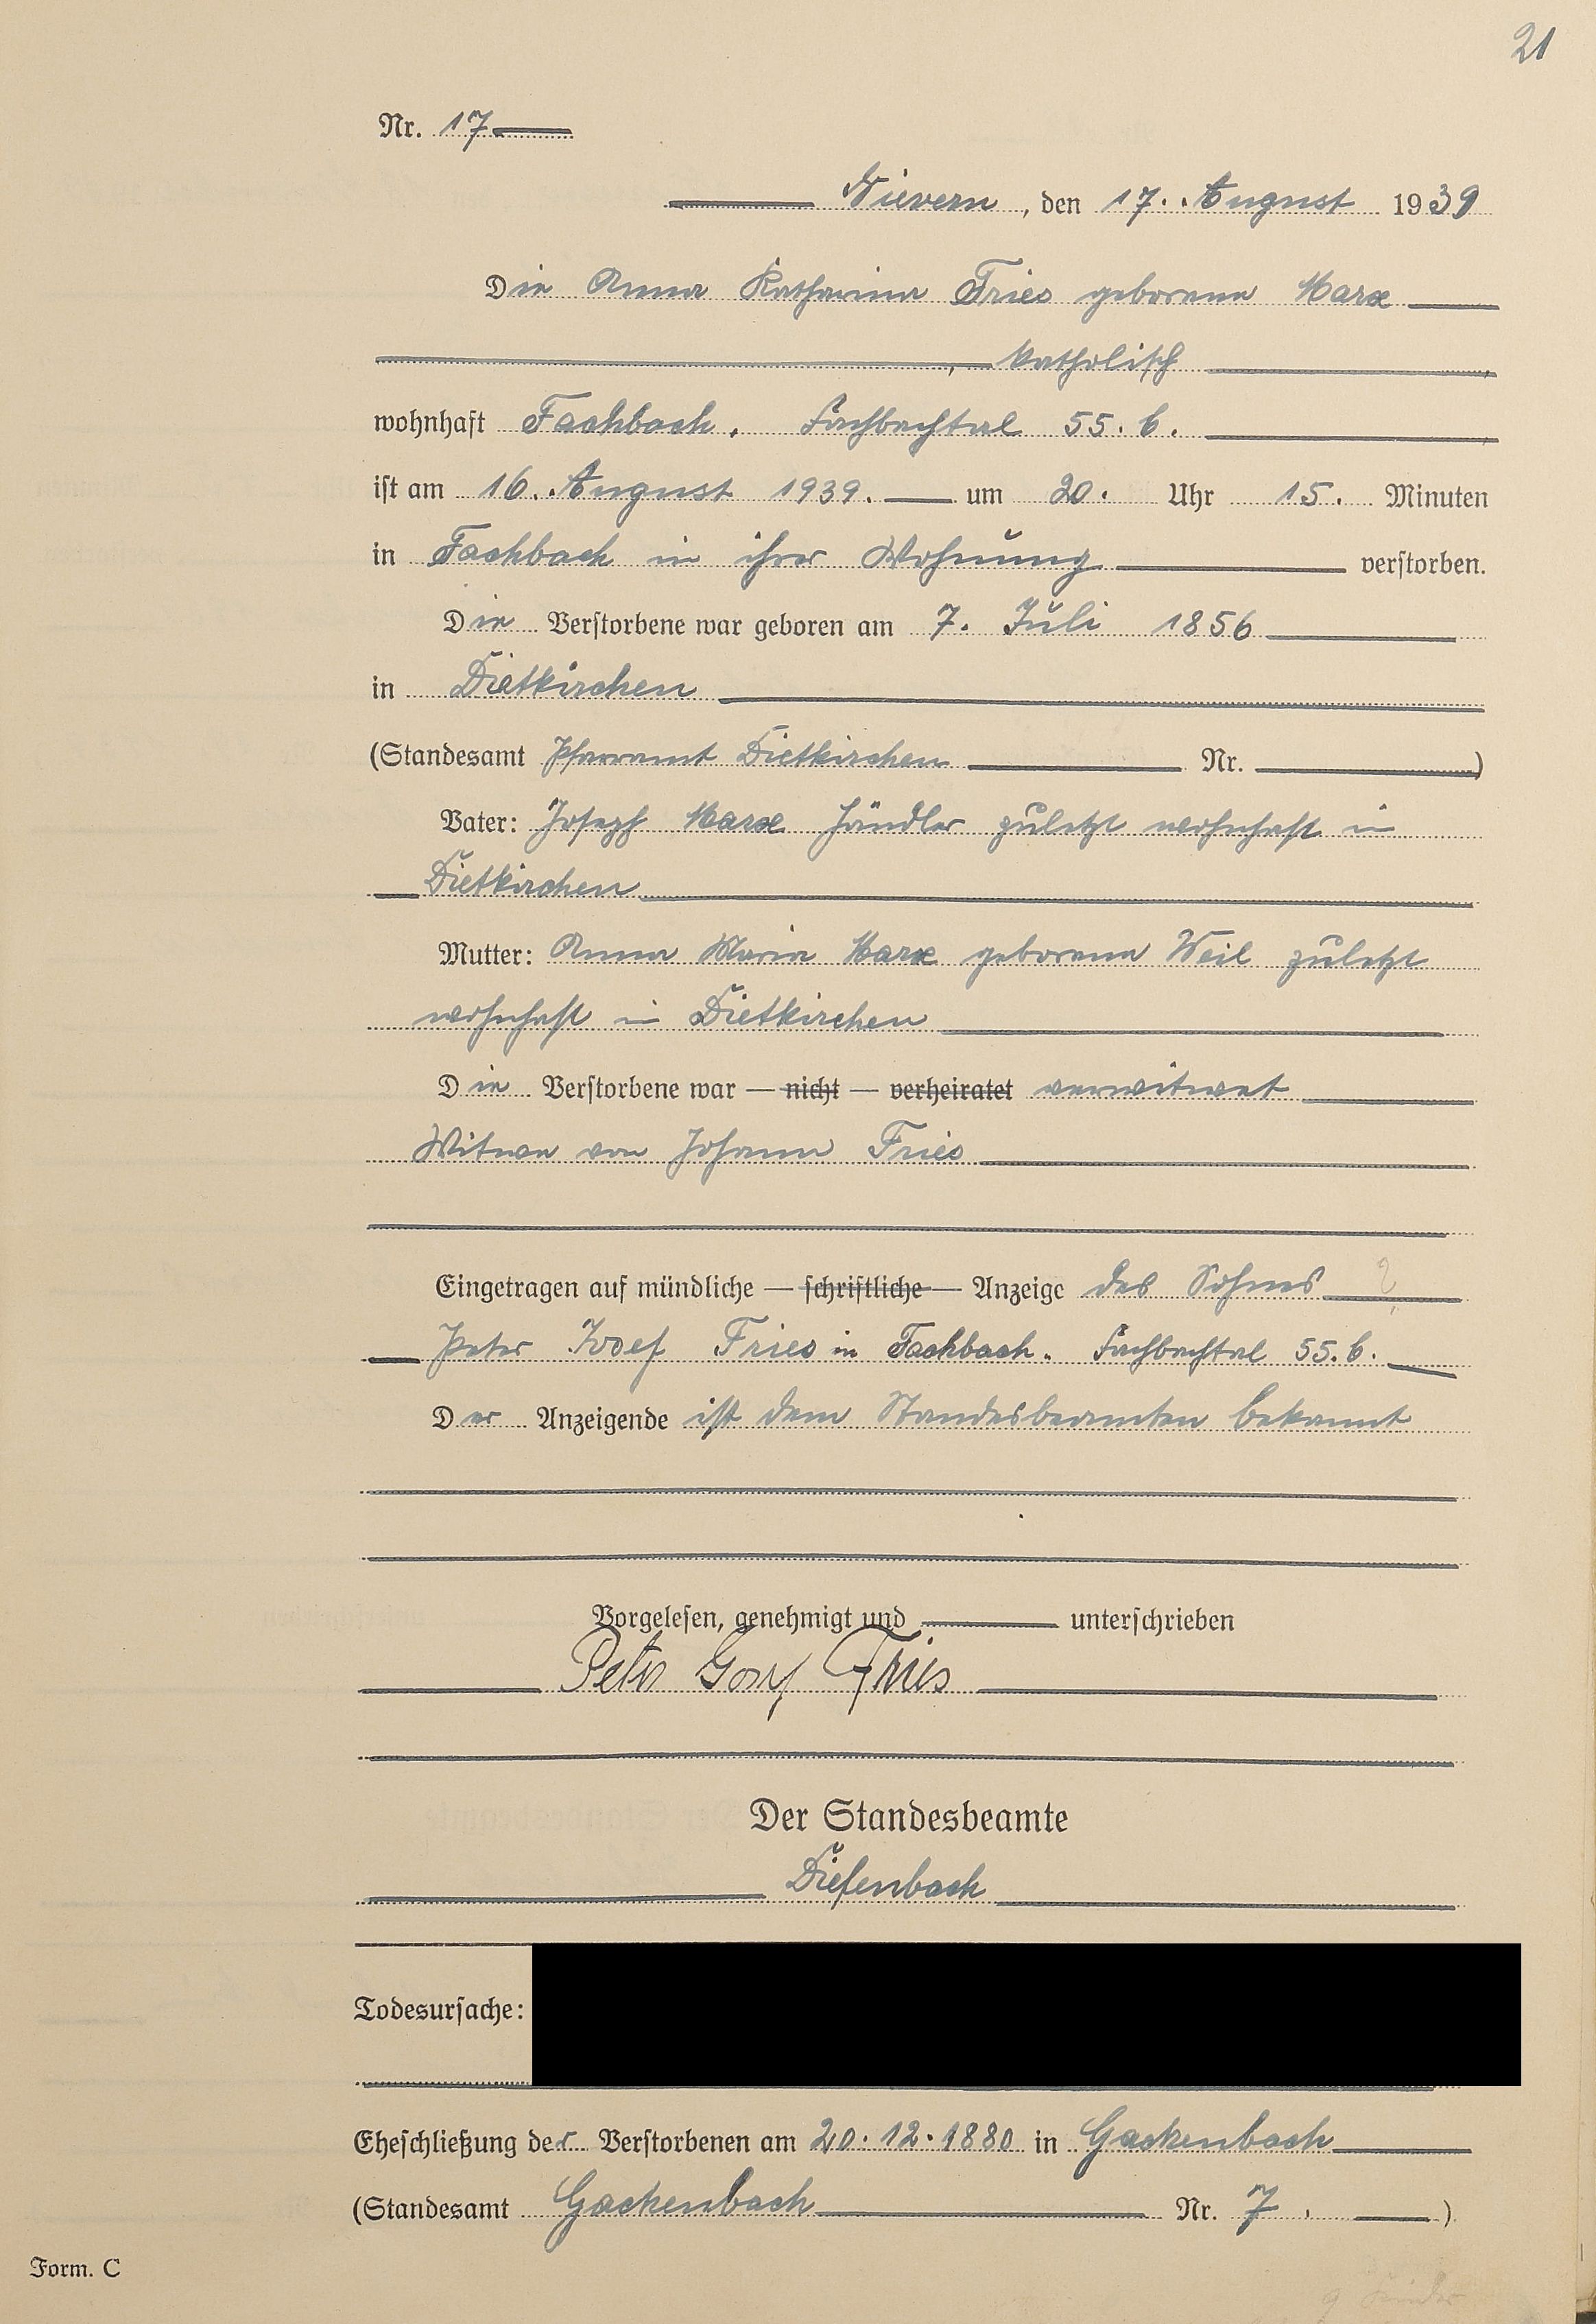 21
Nr. 17
Nievern, den 17. August 1939
Die Anna Katharina Fries geborene Marx
, katholisch,
wohnhaft Fachbach. Fachbachtal 55. b.
ist am 16. August 1939. um 20. Uhr 15. Minuten
in Fachbach in ihrer Wohnung verstorben.
Die Verstorbene war geboren am 7. Juli 1856
in Dietkirchen
(Standesamt Pfarramt Dietkirchen Nr. )
Vater: Joseph Marx Händler zuletzt wohnhaft in
Dietkirchen
Mutter: Anna Maria Marx geborene Weil zuletzt
wohnhaft in Dietkirchen
Die Verstorbene war — nicht — verheiratet verwitwet
Witwe von Johann Fries
Eingetragen auf mündliche — schriftliche — Anzeige des Sohnes
Peter Josef Fries in Fachbach. Fachbachtal 55. b.
Der Anzeigende ist dem Standesbeamten bekannt
Vorgelesen, genehmigt und unterschrieben
Peter Josef Fries
Der Standesbeamte
Diefenbach
Todesursache:
Eheschließung der Verstorbenen am 20.12.1880 in Gackenbach
(Standesamt Gackenbach Nr. 7. )
Form. C